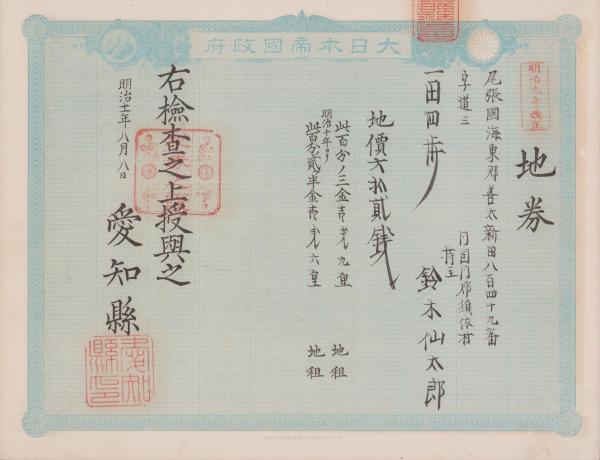 大日本帝國政府
明治九年改正
地券
尾張國海東郡善太新田八百四十九番
字道三
同国同郡須依村
持主 鈴木仙太郎
一田四歩
地價六拾貳銭
此百分ノ三金壱銭九厘 地租
明治十年ヨリ
此百分ノ貳半金壱銭六厘 地租
右檢査之上授與之
明治十一年八月八日
愛知縣
愛知縣印